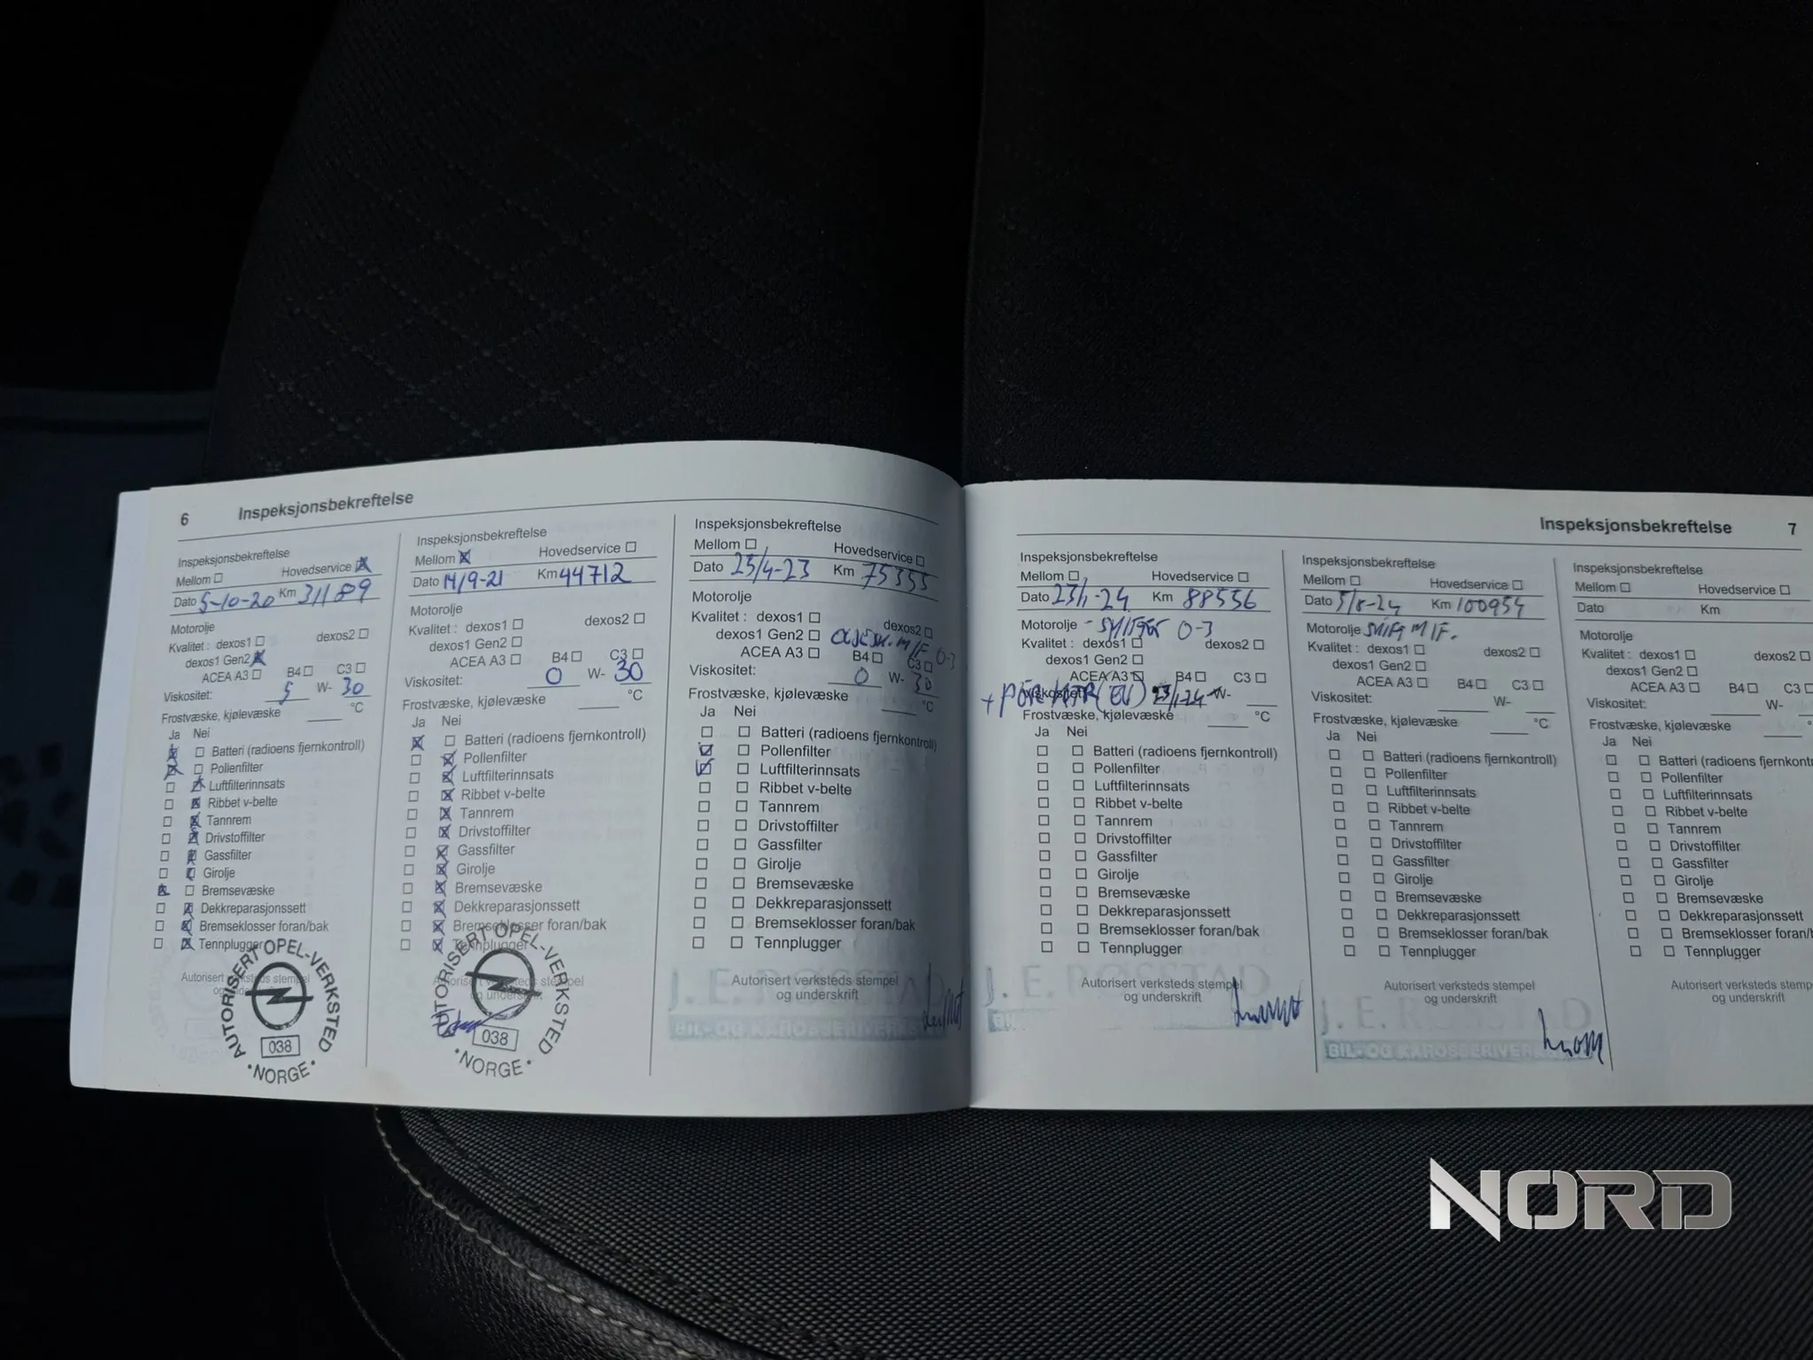 6 Inspeksjonsbekreftelse
Inspeksjonsbekreftelse
Mellom ☐ Hovedservice ☒
Dato 5-10-20 Km 31189
Motorolje
Kvalitet : dexos1 ☐ dexos2 ☐
dexos1 Gen2 ☒
ACEA A3 ☐ B4 ☐ C3 ☐
Viskositet: 5 W- 30
Frostvæske, kjølevæske °C
Ja Nei
☒ ☐ Batteri (radioens fjernkontroll)
☒ ☐ Pollenfilter
☐ ☒ Luftfilterinnsats
☐ ☒ Ribbet v-belte
☐ ☒ Tannrem
☐ ☒ Drivstoffilter
☐ ☒ Gassfilter
☐ ☒ Girolje
☒ ☐ Bremsevæske
☐ ☒ Dekkreparasjonssett
☐ ☒ Bremseklosser foran/bak
☐ ☒ Tennplugger
Autorisert verksteds stempel
AUTORISERT OPEL-VERKSTED
038
• NORGE •
Inspeksjonsbekreftelse
Mellom ☒ Hovedservice ☐
Dato 14/9-21 Km 44712
Motorolje
Kvalitet : dexos1 ☐ dexos2 ☐
dexos1 Gen2 ☐
ACEA A3 ☐ B4 ☐ C3 ☐
Viskositet: 0 W- 30
Frostvæske, kjølevæske °C
Ja Nei
☒ ☐ Batteri (radioens fjernkontroll)
☐ ☒ Pollenfilter
☐ ☒ Luftfilterinnsats
☐ ☒ Ribbet v-belte
☐ ☒ Tannrem
☐ ☒ Drivstoffilter
☐ ☒ Gassfilter
☐ ☒ Girolje
☐ ☒ Bremsevæske
☐ ☒ Dekkreparasjonssett
☐ ☒ Bremseklosser foran/bak
☐ ☒ Tennplugger
Autorisert verksteds stempel
og underskrift
AUTORISERT OPEL-VERKSTED
038
• NORGE •
Inspeksjonsbekreftelse
Mellom ☐ Hovedservice ☐
Dato 25/4-23 Km 75355
Motorolje
Kvalitet : dexos1 ☐ dexos2 ☐
dexos1 Gen2 ☐ M/F 0-3
ACEA A3 ☐ B4 ☐ C3 ☐
Viskositet: 0 W- 30
Frostvæske, kjølevæske °C
Ja Nei
☐ ☐ Batteri (radioens fjernkontroll)
☑ ☐ Pollenfilter
☑ ☐ Luftfilterinnsats
☐ ☐ Ribbet v-belte
☐ ☐ Tannrem
☐ ☐ Drivstoffilter
☐ ☐ Gassfilter
☐ ☐ Girolje
☐ ☐ Bremsevæske
☐ ☐ Dekkreparasjonssett
☐ ☐ Bremseklosser foran/bak
☐ ☐ Tennplugger
Autorisert verksteds stempel
og underskrift
J. E. RØSSTAD
BIL- OG KAROSSERIVERK
Inspeksjonsbekreftelse 7
Inspeksjonsbekreftelse
Mellom ☐ Hovedservice ☐
Dato 23/1-24 Km 88556
Motorolje 0-3
Kvalitet : dexos1 ☐ dexos2 ☐
dexos1 Gen2 ☐
ACEA A3 ☐ B4 ☐ C3 ☐
Viskositet: 23/1-24 W-
Frostvæske, kjølevæske °C
Ja Nei
☐ ☐ Batteri (radioens fjernkontroll)
☐ ☐ Pollenfilter
☐ ☐ Luftfilterinnsats
☐ ☐ Ribbet v-belte
☐ ☐ Tannrem
☐ ☐ Drivstoffilter
☐ ☐ Gassfilter
☐ ☐ Girolje
☐ ☐ Bremsevæske
☐ ☐ Dekkreparasjonssett
☐ ☐ Bremseklosser foran/bak
☐ ☐ Tennplugger
Autorisert verksteds stempel
og underskrift
J. E. RØSSTAD
Inspeksjonsbekreftelse
Mellom ☐ Hovedservice ☐
Dato 5/8-24 Km 100954
Motorolje M/F.
Kvalitet : dexos1 ☐ dexos2 ☐
dexos1 Gen2 ☐
ACEA A3 ☐ B4 ☐ C3 ☐
Viskositet: W-
Frostvæske, kjølevæske °C
Ja Nei
☐ ☐ Batteri (radioens fjernkontroll)
☐ ☐ Pollenfilter
☐ ☐ Luftfilterinnsats
☐ ☐ Ribbet v-belte
☐ ☐ Tannrem
☐ ☐ Drivstoffilter
☐ ☐ Gassfilter
☐ ☐ Girolje
☐ ☐ Bremsevæske
☐ ☐ Dekkreparasjonssett
☐ ☐ Bremseklosser foran/bak
☐ ☐ Tennplugger
Autorisert verksteds stempel
og underskrift
J. E. RØSSTAD
BIL- OG KAROSSERIVERK
Inspeksjonsbekreftelse
Mellom ☐ Hovedservice ☐
Dato Km
Motorolje
Kvalitet : dexos1 ☐ dexos2 ☐
dexos1 Gen2 ☐
ACEA A3 ☐ B4 ☐ C3 ☐
Viskositet: W-
Frostvæske, kjølevæske
Ja Nei
☐ ☐ Batteri (radioens fjernkont
☐ ☐ Pollenfilter
☐ ☐ Luftfilterinnsats
☐ ☐ Ribbet v-belte
☐ ☐ Tannrem
☐ ☐ Drivstoffilter
☐ ☐ Gassfilter
☐ ☐ Girolje
☐ ☐ Bremsevæske
☐ ☐ Dekkreparasjonssett
☐ ☐ Bremseklosser foran/b
☐ ☐ Tennplugger
Autorisert verksteds stemp
og underskrift
NORD